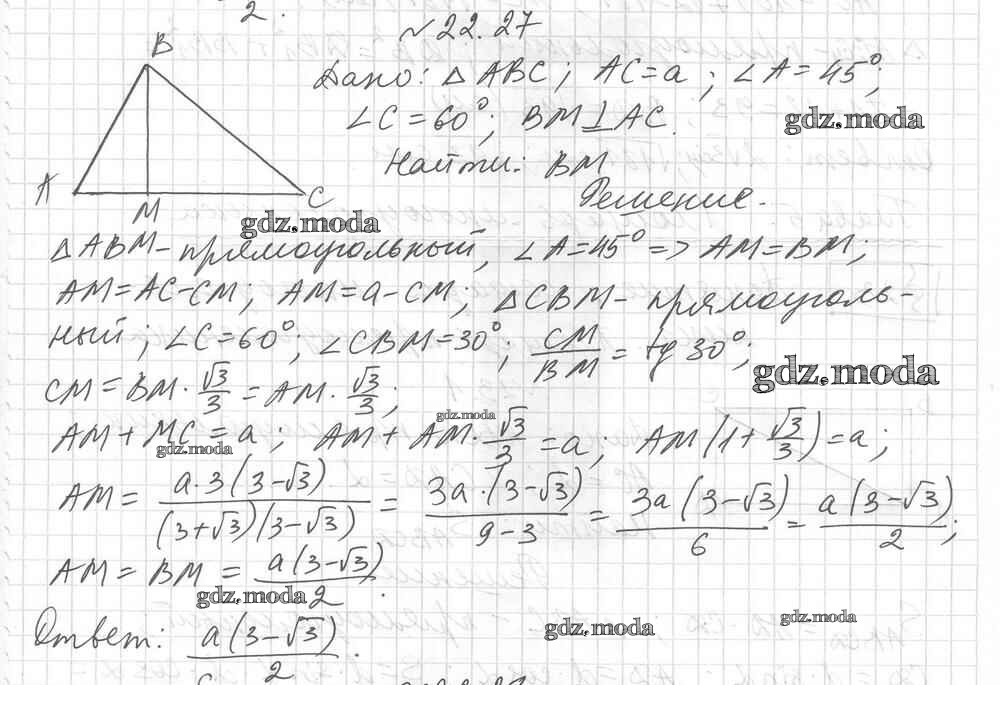 2.
№22.27
B
Дано: △ABC; AC=a; ∠A=45°;
∠C=60°; BM⊥AC.
gdz.moda
Найти: BM
A
M
C
Решение.
gdz.moda
△ABM-прямоугольный, ∠A=45° => AM=BM;
AM=AC-CM; AM=a-CM; △CBM- прямоуголь-
ный; ∠C=60°; ∠CBM=30°; CM/BM = tg 30°;
gdz.moda
CM = BM·√3/3 = AM·√3/3;
gdz.moda
AM+MC=a; AM+AM·√3/3=a; AM(1+√3/3)=a;
gdz.moda
AM= a·3(3-√3)/(3+√3)(3-√3) = 3a·(3-√3)/9-3 = 3a(3-√3)/6 = a(3-√3)/2;
AM=BM= a(3-√3)/2.
gdz.moda
Ответ: a(3-√3)/2.
gdz.moda
gdz.moda